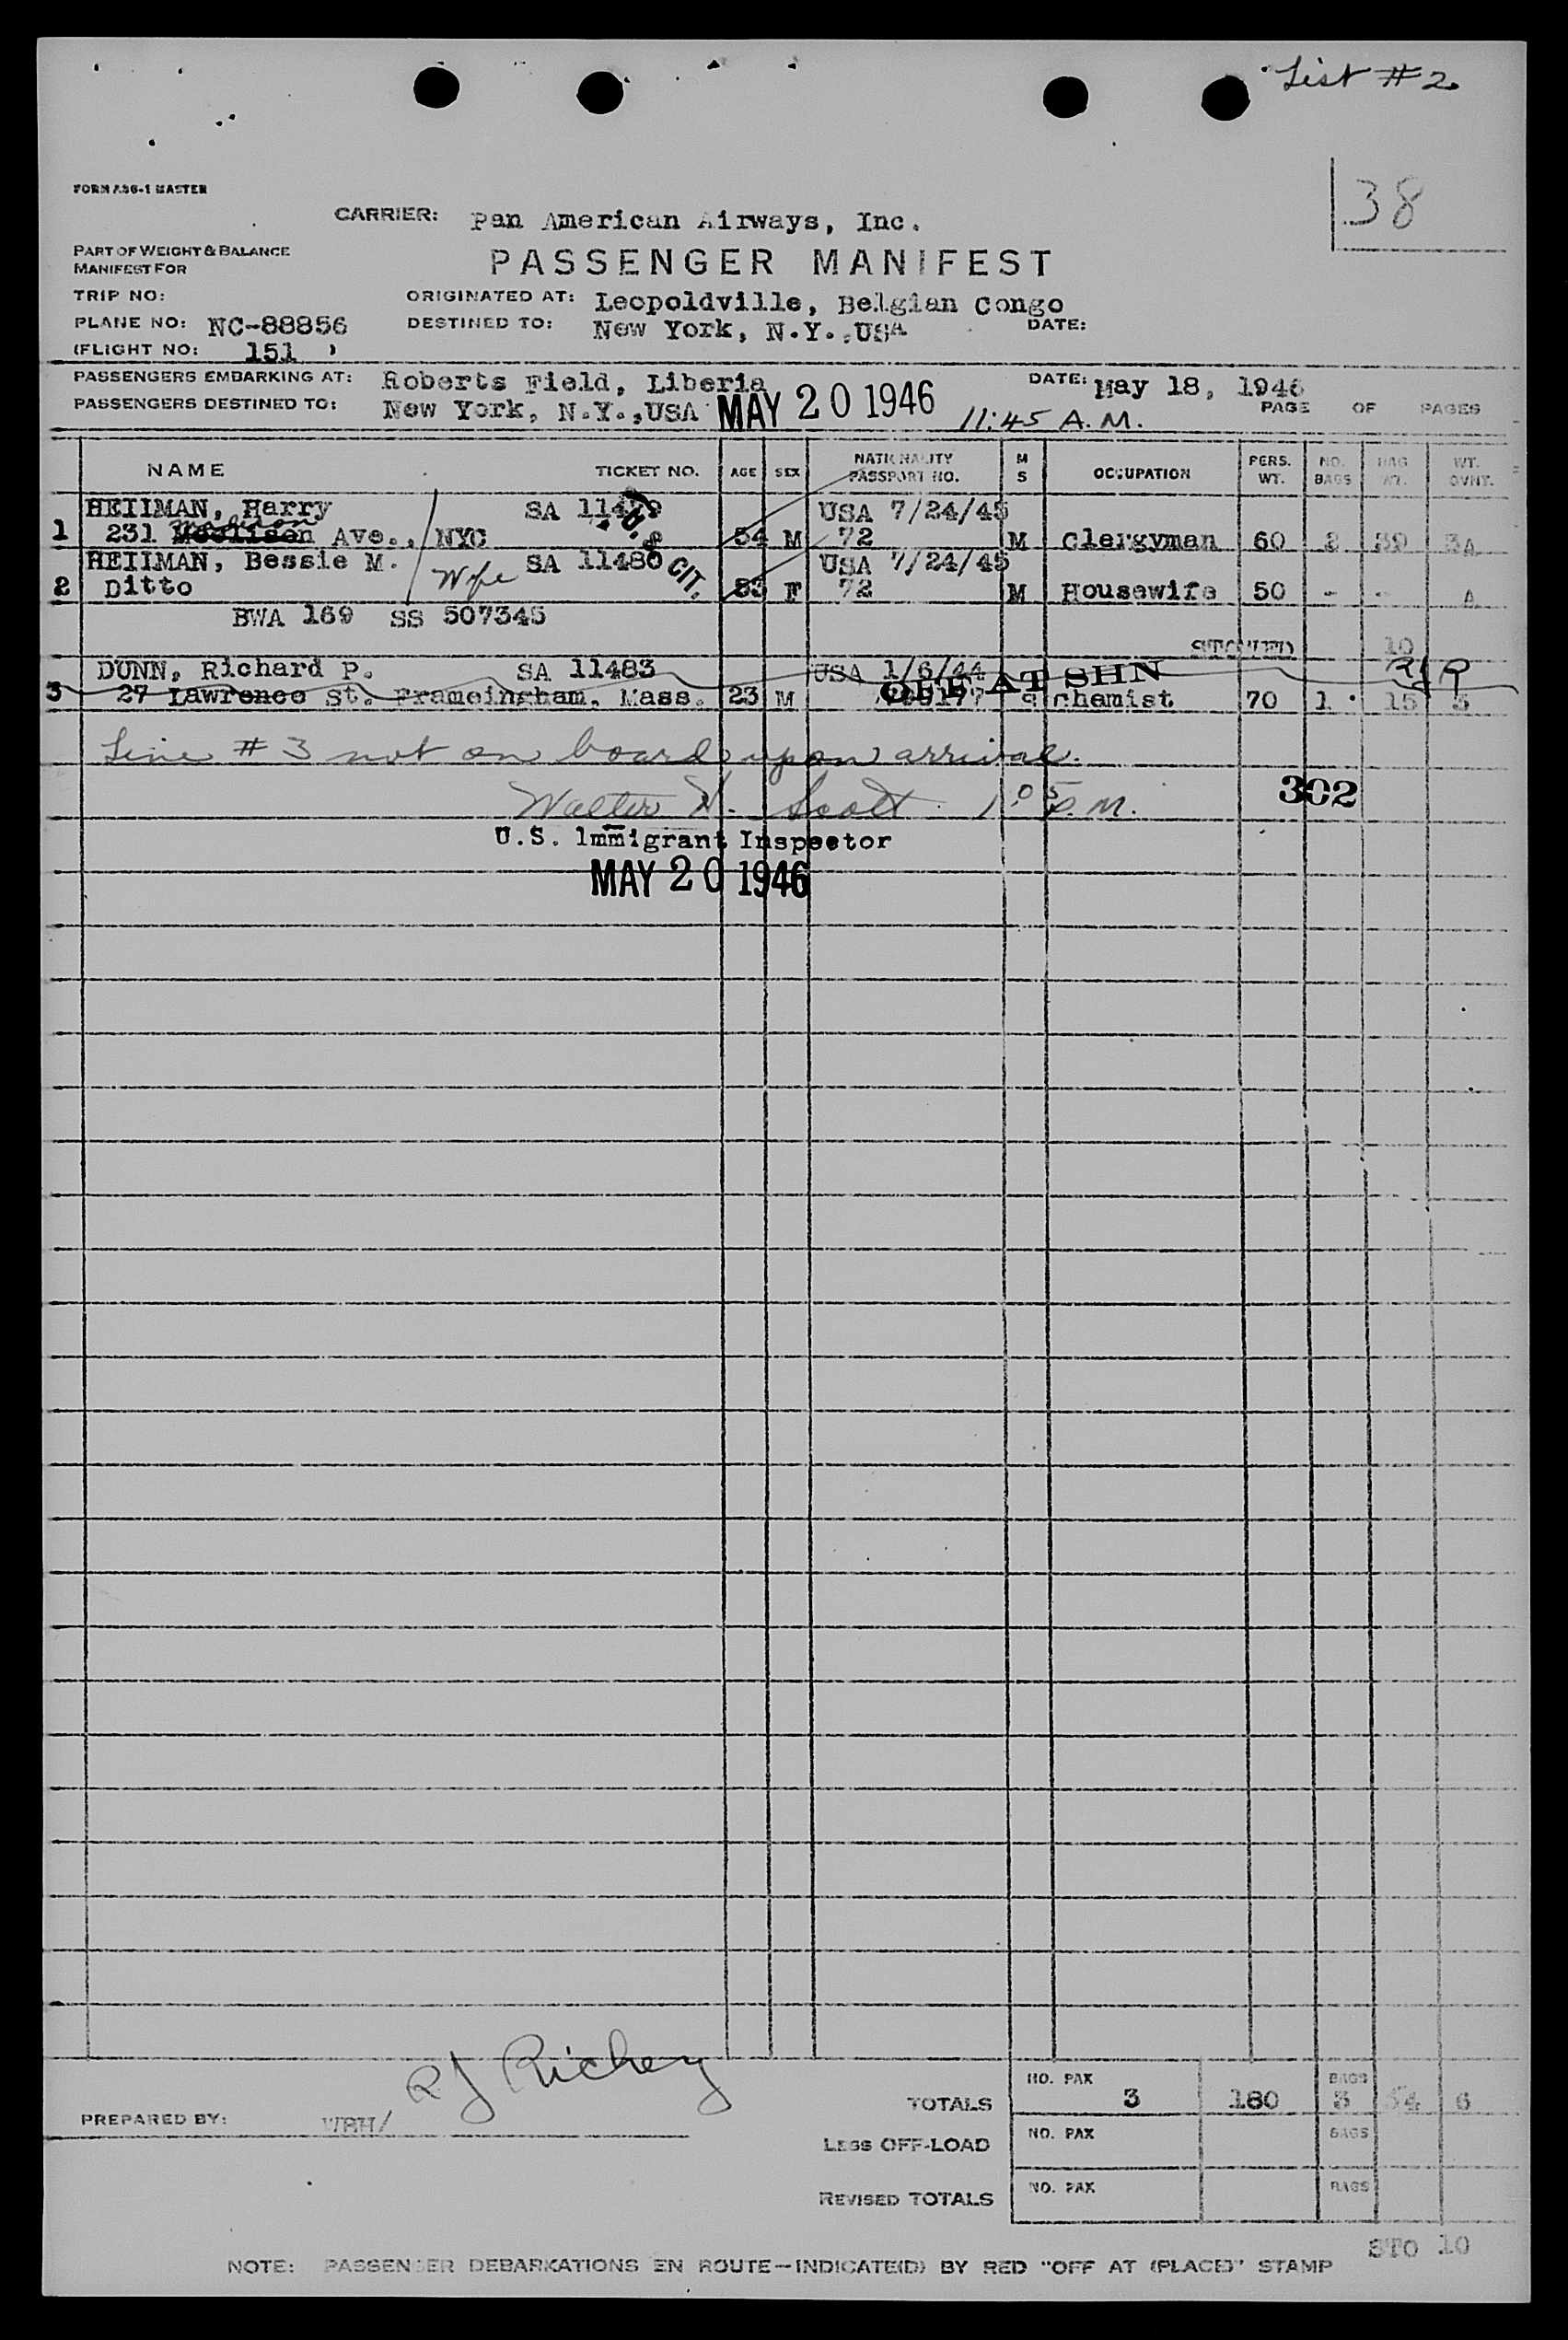 List #2
38
FORM A86-1 MASTER
CARRIER: Pan American Airways, Inc.
PART OF WEIGHT & BALANCE
MANIFEST FOR
PASSENGER MANIFEST
TRIP NO:
ORIGINATED AT: Leopoldville, Belgian Congo
PLANE NO: NC-88856
DESTINED TO: New York, N.Y.,USA
DATE:
(FLIGHT NO: 151 )
PASSENGERS EMBARKING AT: Roberts Field, Liberia
DATE: May 18, 1946
PASSENGERS DESTINED TO: New York, N.Y.,USA MAY 20 1946 11:45 A.M.
PAGE OF PAGES
NAME TICKET NO. AGE SEX NATIONALITY PASSPORT NO. M S OCCUPATION PERS. WT. NO. BAGS BAG WT. WT. OVHT.
HEIIMAN, Harry SA 11479 USA 7/24/45
1 231 Madison Ave., NYC 54 M 72 M Clergyman 60 2 39 3A
U.S. CIT.
HEIIMAN, Bessie M. Wife SA 11480 USA 7/24/45
2 Ditto 53 F 72 M Housewife 50 - - A
BWA 169 SS 507345
STOWED 10
DUNN, Richard P. SA 11483 USA 1/6/44
OFF AT SHN
RJR
3 27 Lawrence St. Frameingham, Mass. 23 M S Chemist 70 1 15 3
Line #3 not on board upon arrival.
Walter H. Scott 1:05 P.M.
302
U.S. Immigrant Inspector
MAY 20 1946
RJ Richey
PREPARED BY: WBH/
TOTALS NO. PAX 3 180 BAGS 3 54 6
LESS OFF-LOAD NO. PAX BAGS
REVISED TOTALS NO. PAX BAGS
STO 10
NOTE: PASSENGER DEBARKATIONS EN ROUTE—INDICATE(D) BY RED "OFF AT (PLACE)" STAMP